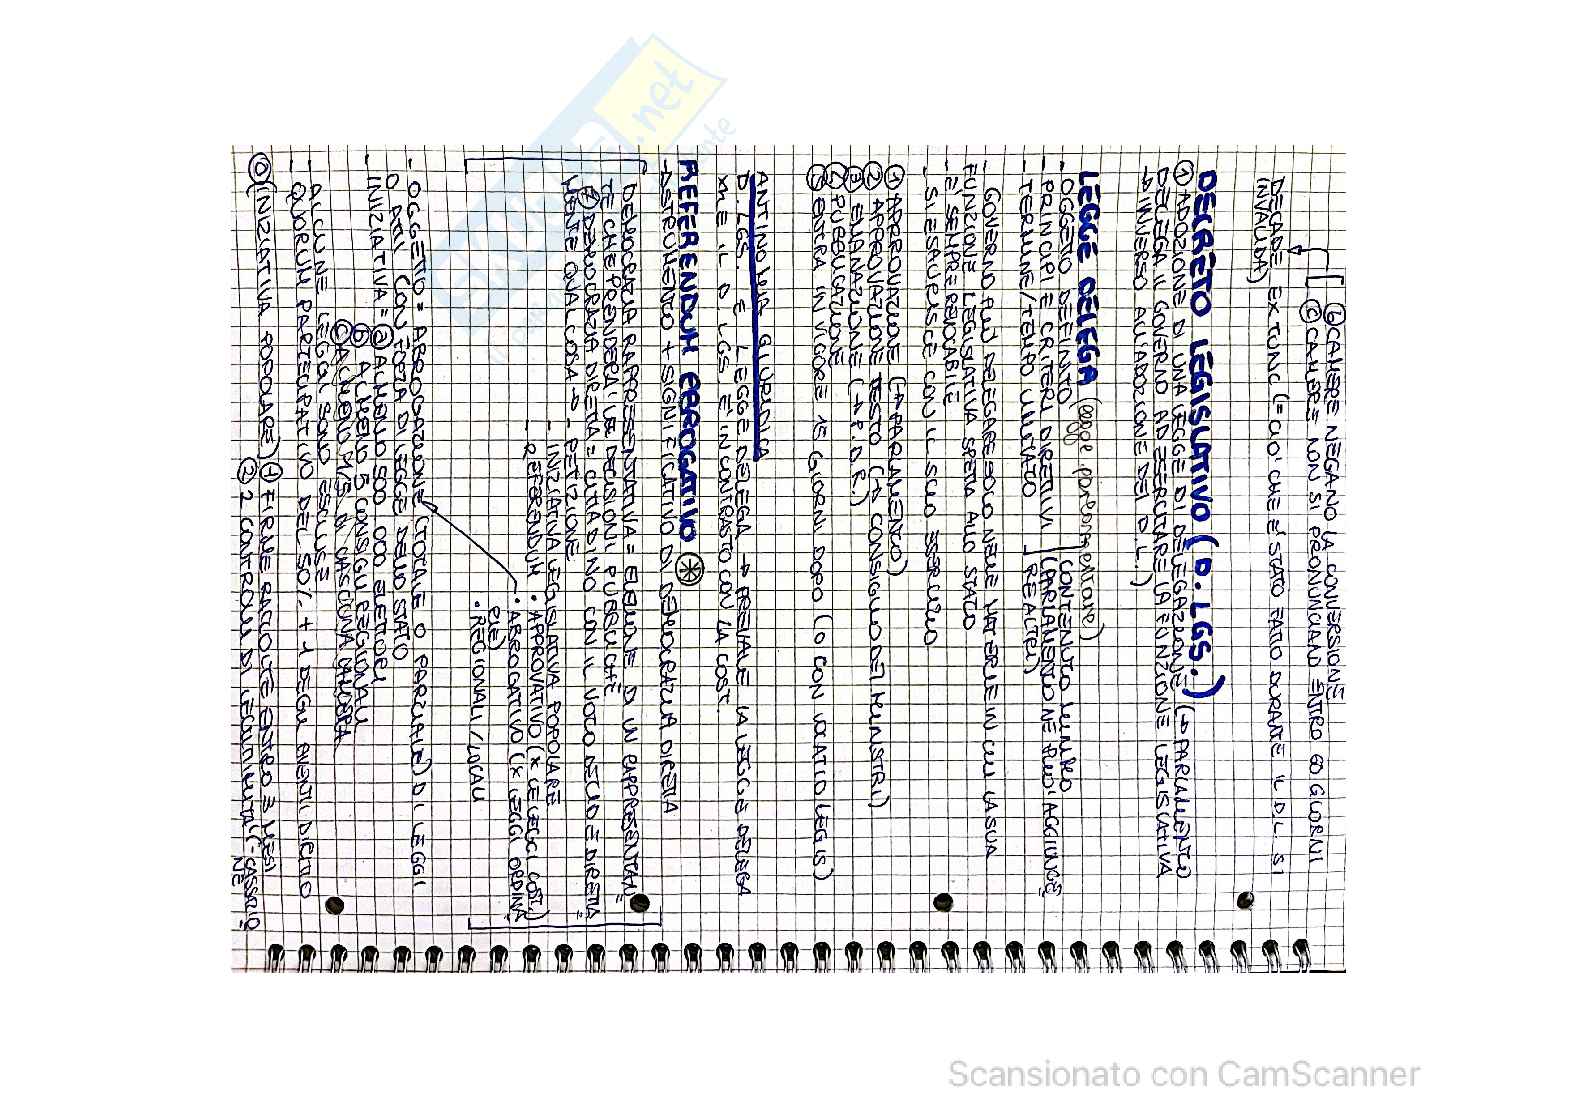 b) CAMERE NEGANO LA CONVERSIONE
c) CAMERE NON SI PRONUNCIANO ENTRO 60 GIORNI
DECADE EX TUNC (= CIO' CHE E' STATO FATTO DURANTE IL D.L. SI
INVALIDA)
DECRETO LEGISLATIVO (D. LGS.)
① ADOZIONE DI UNA LEGGE DI DELEGAZIONE (→ PARLAMENTO
DELEGA IL GOVERNO AD ESERCITARE LA FUNZIONE LEGISLATIVA
→ INVERSO ALL'ADOZIONE DEL D.L.)
LEGGE DELEGA (legge parlamentare)
- OGGETTO DEFINITO
- PRINCIPI E CRITERI DIRETTIVI
- TERMINE/TEMPO LIMITATO
CONTENUTO MINIMO
(PARLAMENTO NE PUO' AGGIUNGE=
RE ALTRI)
- GOVERNO PUO' DELEGARE SOLO NELLE MATERIE IN CUI LA SUA
FUNZIONE LEGISLATIVA SPETTA ALLO STATO
- E' SEMPRE REVOCABILE
- SI ESAURISCE CON IL SUO ESERCIZIO
① APPROVAZIONE (→ PARLAMENTO)
② APPROVAZIONE TESTO (→ CONSIGLIO DEI MINISTRI)
③ EMANAZIONE (→ P.D.R.)
④ PUBBLICAZIONE
⑤ ENTRA IN VIGORE 15 GIORNI DOPO (O CON VACATIO LEGIS)
ANTINOMIA GIURIDICA
D. LGS. E LEGGE DELEGA → PREVALE LA LEGGE DELEGA
XKE IL D. LGS E' IN CONTRASTO CON LA COST.
REFERENDUM ABROGATIVO ✳
→ STRUMENTO + SIGNIFICATIVO DI DEMOCRAZIA DIRETTA
DEMOCRAZIA RAPPRESENTATIVA = ELEZIONE DI UN RAPPRESENTAN=
TE CHE PRENDERA' LE DECISIONI PUBBLICHE
≠ DEMOCRAZIA DIRETTA = CITTADINO CON IL VOTO DECIDE DIRETTA=
MENTE QUALCOSA → - PETIZIONE
- INIZIATIVA LEGISLATIVA POPOLARE
- REFERENDUM • APPROVATIVO (X LEGGI COST.)
• ABROGATIVO (X LEGGI ORDINA=
RIE)
• REGIONALI / LOCALI
- OGGETTO = ABROGAZIONE (TOTALE O PARZIALE) DI LEGGI
O ATTI CON FORZA DI LEGGE DELLO STATO
- INIZIATIVA = a) ALMENO 500 000 ELETTORI
b) ALMENO 5 CONSIGLI REGIONALI
c) ALMENO 1/5 DI CIASCUNA CAMERA
- ALCUNE LEGGI SONO ESCLUSE
- QUORUM PARTECIPATIVO DEL 50% + 1 DEGLI AVENTI DIRITTO
⓪ (INIZIATIVA POPOLARE) ① FIRME RACCOLTE ENTRO 3 MESI
② 2 CONTROLLI DI LEGITTIMITA' (- CASSAZIO=
NE
Scansionato con CamScanner